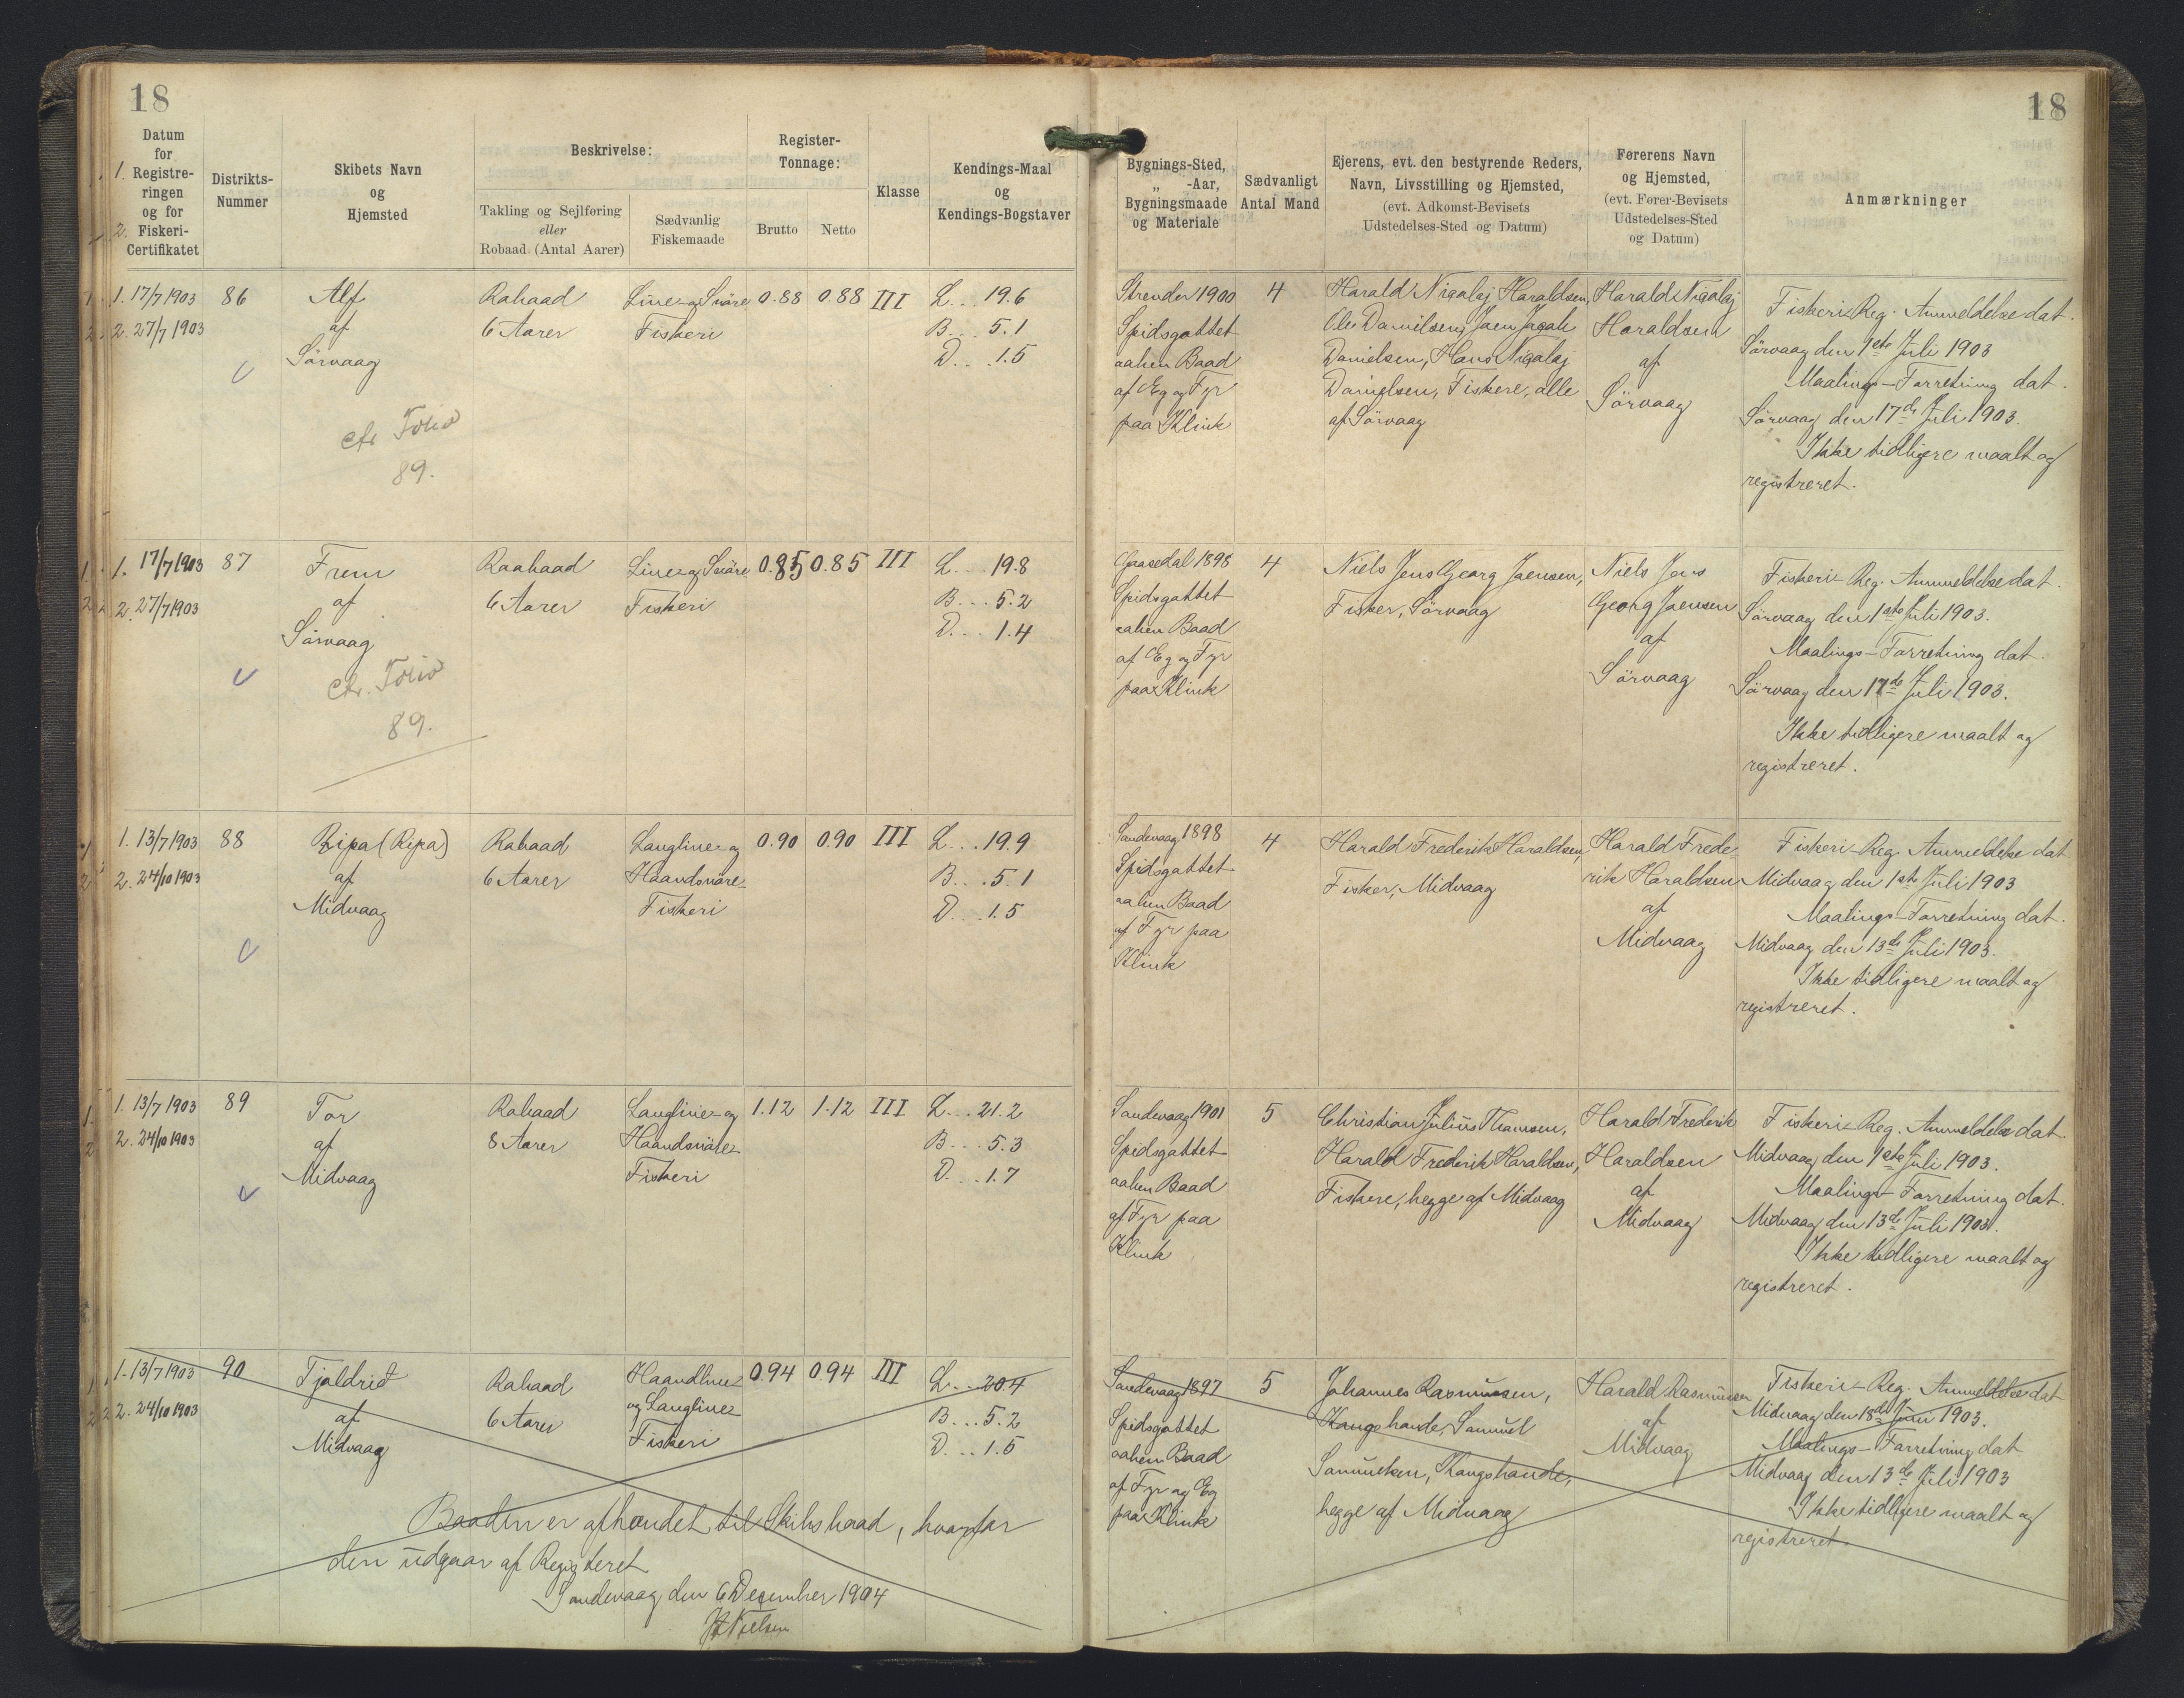 18
18
Datum
for
1. Registre-
ringen
og for
2. Fiskeri-
Certifikatet
Distrikts-
Nummer
Skibets Navn
og
Hjemsted
Beskrivelse:
Takling og Sejlføring
eller
Robaad (Antal Aarer)
Sædvanlig
Fiskemaade
Register-
Tonnage:
Brutto
Netto
Klasse
Kendings-Maal
og
Kendings-Bogstaver
Bygnings-Sted,
„ -Aar,
Bygningsmaade
og Materiale
Sædvanligt
Antal Mand
Ejerens, evt. den bestyrende Reders,
Navn, Livsstilling og Hjemsted,
(evt. Adkomst-Bevisets
Udstedelses-Sted og Datum)
Førerens Navn
og Hjemsted,
(evt. Fører-Bevisets
Udstedelses-Sted
og Datum)
Anmærkninger
1. 17/7 1903
2. 27/7 1903
86
Alf
af
Sörvaag
cfr Folio
89.
Robaad
6 Aarer
Line- og Snöre
Fiskeri
0.88
0.88
III
L... 19.6
B... 5.1
D... 1.5
Strender 1900
Spidsgattet
aaben Baad
af Eg og Fyr
paa Klink
4
Harald Nigalaj Haraldsen,
Ole Danielsen, Joen Jagab
Danielsen, Hans Nigalaj
Danielsen, Fiskere, alle
af Sörvaag
Harald Nigalaj
Haraldsen
af
Sörvaag
Fiskeri-Reg. Anmeldelse dat.
Sörvaag den 1ste Juli 1903
Maalings-Forretning dat.
Sörvaag den 17de Juli 1903.
Ikke tidligere maalt og
registreret.
1. 17/7 1903
2. 27/7 1903
87
Frem
af
Sörvaag
cfr. Folio
89.
Roabaad
6 Aarer
Line- og Snöre
Fiskeri
0.85
0.85
III
L... 19.8
B... 5.2
D... 1.4
Gaasedal 1898
Spidsgattet
aaben Baad
af Eg og Fyr
paa Klink
4
Niels Jens Georg Joensen,
Fisker, Sörvaag
Niels Jens
Georg Joensen
af
Sörvaag
Fiskeri-Reg. Anmeldelse dat.
Sörvaag den 1ste Juli 1903.
Maalings-Forretning dat.
Sörvaag den 17de Juli 1903.
Ikke tidligere maalt og
registreret.
1. 13/7 1903
2. 24/10 1903
88
Ripa (Ripa)
af
Midvaag
Robaad
6 Aarer
Langline- og
Haandsnöre-
Fiskeri
0.90
0.90
III
L... 19.9
B... 5.1
D... 1.5
Sandevaag 1898
Spidsgattet
aaben Baad
af Fyr paa
Klink
4
Harald Frederik Haraldsen,
Fisker, Midvaag
Harald Frede-
rik Haraldsen
af
Midvaag
Fiskeri-Reg. Anmeldelse dat
Midvaag den 1ste Juli 1903
Maalings-Forretning dat.
Midvaag den 13de Juli 1903.
Ikke tidligere maalt og
registreret.
1. 13/7 1903
2. 24/10 1903
89
Tor
af
Midvaag
Robaad
8 Aarer
Langline- og
Haandsnöre-
Fiskeri
1.12
1.12
III
L... 21.2
B... 5.3
D... 1.7
Sandevaag 1901
Spidsgattet
aaben Baad
af Fyr paa
Klink
5
Christian Julius Thomsen,
Harald Frederik Haraldsen,
Fiskere, begge af Midvaag
Harald Frederik
Haraldsen
af
Midvaag
Fiskeri-Reg. Anmeldelse dat.
Midvaag den 1ste Juli 1903.
Maalings-Forretning dat.
Midvaag den 13de Juli 1903.
Ikke tidligere maalt og
registreret.
1. 13/7 1903
2. 24/10 1903
90
Tjaldrid
af
Midvaag
Robaad
6 Aarer
Haandline-
og Langline-
Fiskeri
0.94
0.94
III
L... 20.4
B... 5.2
D... 1.5
Sandevaag 1897
Spidsgattet
aaben Baad
af Fyr og Eg
paa Klink
5
Johannes Rasmussen,
Kongsbonde, Samuel
Samuelsen, Kongsbonde,
begge af Midvaag
Harald Rasmussen
af
Midvaag
Fiskeri-Reg. Anmeldelse dat
Midvaag den 18de Juni 1903.
Maalings-Forretning dat
Midvaag den 13de Juli 1903
Ikke tidligere maalt og
registreret.
Baaden er afhændet til Skibsbaad, hvorfor
den udgaar af Registeret
Sandevaag den 6 December 1904